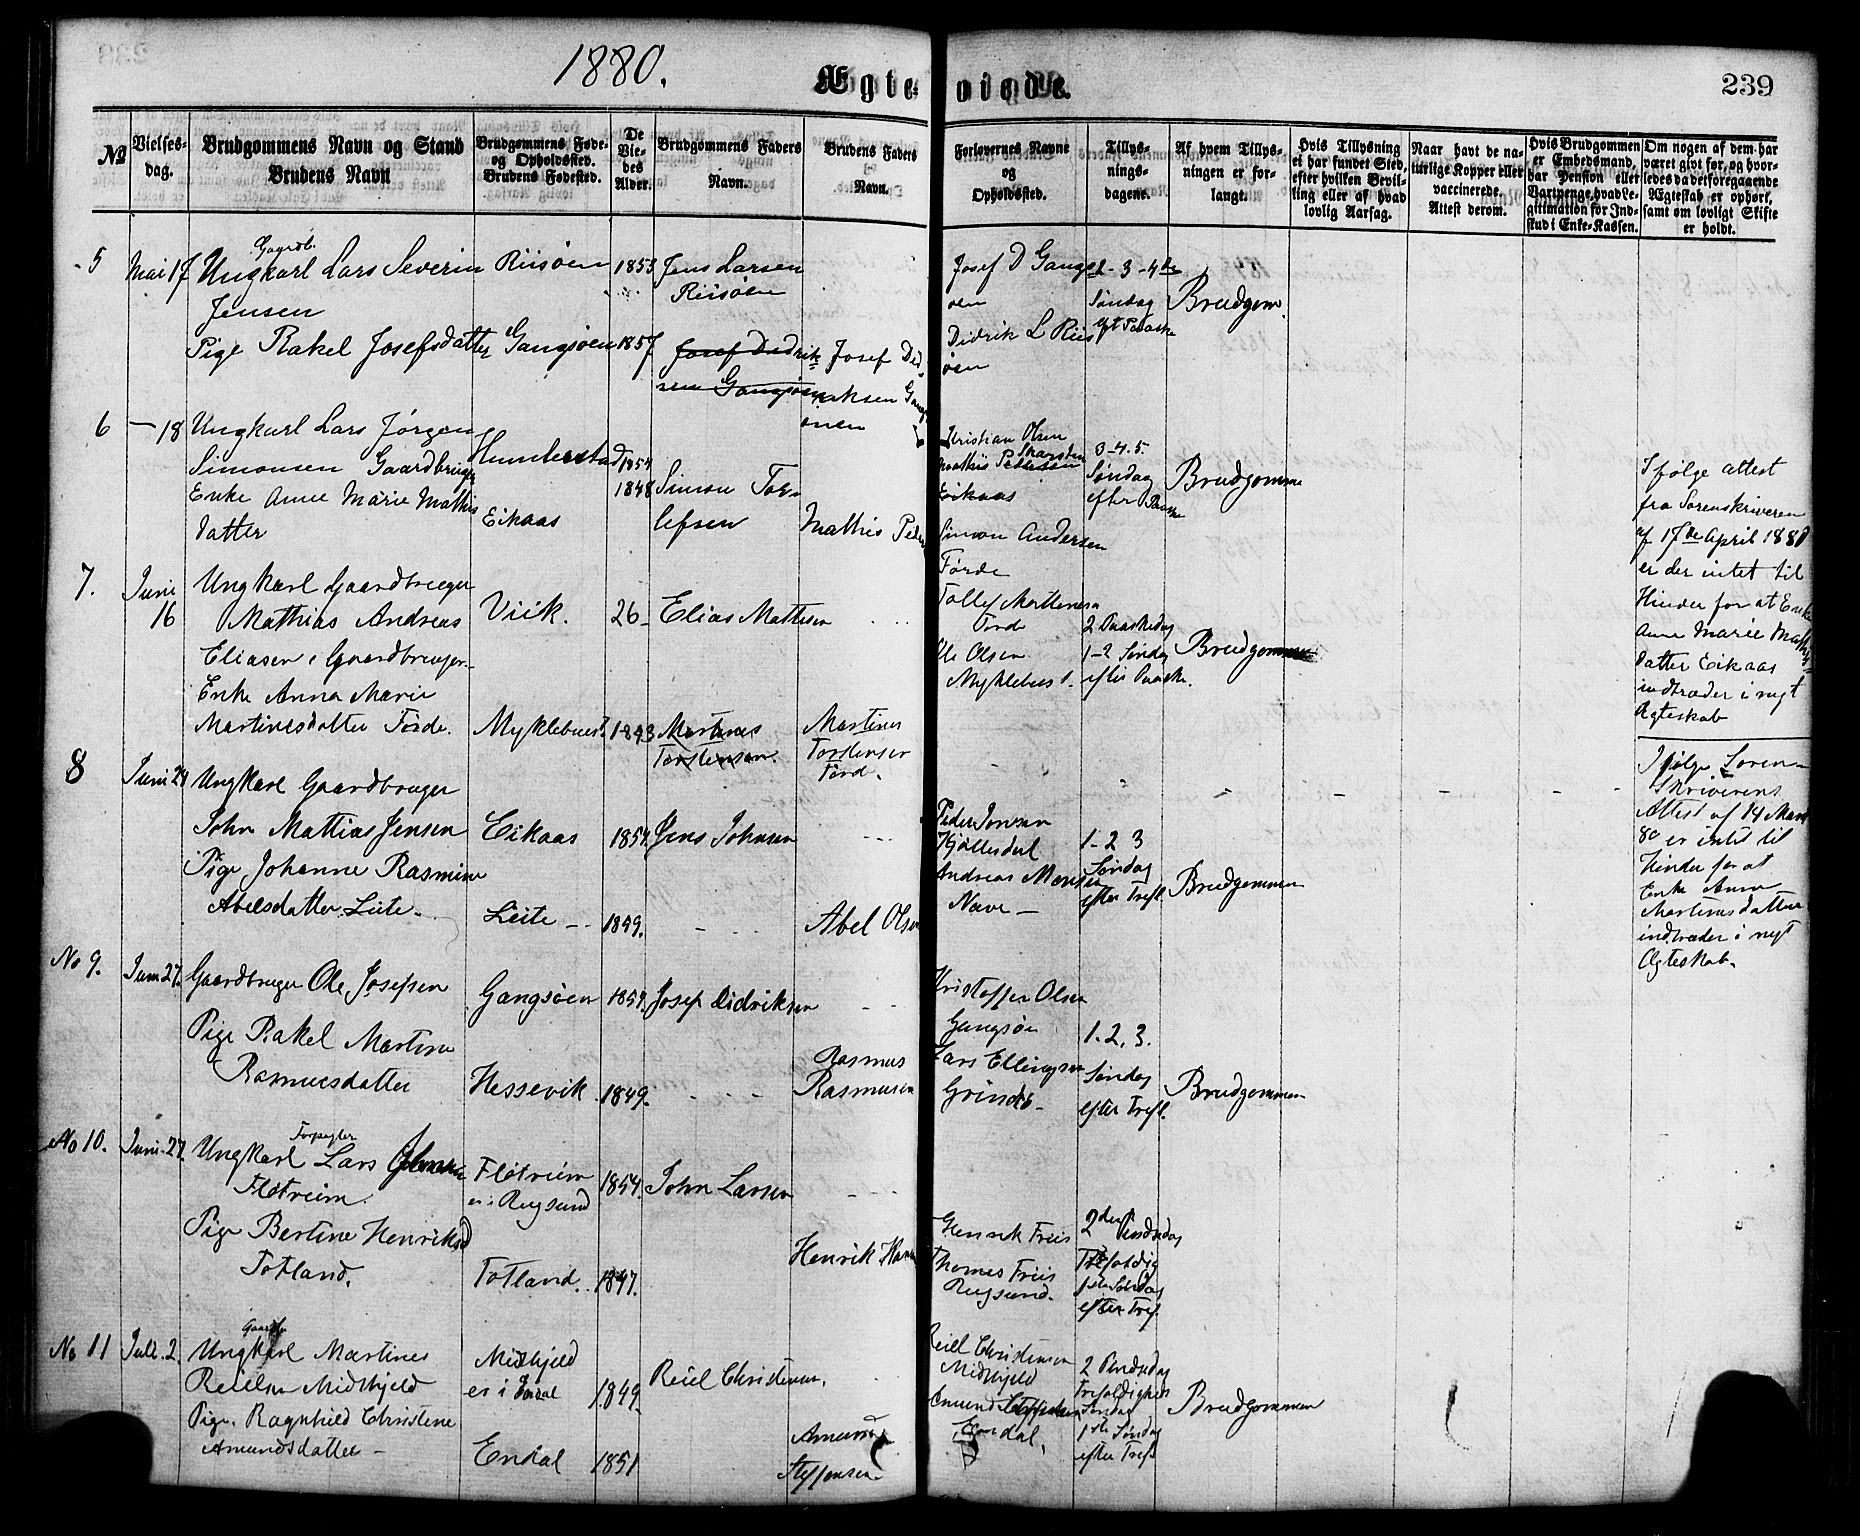 1880.
Ægteviede.
239
No
Vielses-
dag.
Brudgommens Navn og Stand
Brudens Navn
Brudgommens Føde-
og Opholdssted.
Brudens Fødested.
De
Vie-
des
Alder.
Brudgommens Faders
Navn.
Brudens Faders
Navn.
Forlovernes Navne
og
Opholdssted.
Tillys-
nings-
dagene.
Af hvem Tillys-
ningen er for-
langt.
Hvis Tillysning
ei har fundet Sted,
efter hvilken Bevil-
ling eller af hvad
lovlig Aarsag.
Naar havt de na-
turlige Kopper eller
vaccinerede.
Attest derom.
Hvis Brudgommen
er Embedsmand,
har Pension eller
Vartpenge, hvad Le-
gitimation for Ind-
skud i Enke-Kassen.
Om nogen af dem har
været givt før, og hvor-
ledes da det foregaaende
Ægteskab er ophørt,
samt om lovligt Skifte
er holdt.
5
Mai 17
Gaardb.
Ungkarl Lars Severin
Jensen
Pige Rakel Josefsdatter
Riisøen
Gangsøen
1853
1857
Jens Larsen
Riisøen
Josef Didrik
sen Gangsøen
Josef Did
riksen Gang
øen
Josef D Gangs
øen
Didrik L Riis
øen
2 - 3 - 4de
Søndag
eft Paaske
Brudgom.
6
— 18
Ungkarl Lars Jørgen
Simonsen Gaardbruger
Enke Anne Marie Mathis
datter
Humlestad
Eikaas
1854
1848
Simon Tor-
lefsen
Mathis Peder
Kristian Olsen
Mathis Pedersen
Eikaas
Simon Andersen
Førde
3-4-5.
Søndag
efter Paaske
Brudgomme
Ifølge attest
fra Sorenskriveren
af 17de April 1880
er der intet til
Hinder for at Enke
Anne Marie Mathis
datter Eikaas
indtræder i nyt
Ægteskab
7.
Juni
16
Ungkarl Gaardbruger
Mathias Andreas
Eliasen, Gaardbruger.
Enke Anna Marie
Martinesdatter Førde.
Viik.
Myklebust.
26-
1843
Elias Mathisen
Martines
Torstensen.
Martines
Torstensen
Førd.
Tollef Mortensen
Førde
Ole Olsen
Myklebust.
2 Paaskedag
1-2 Søndag
efter Paaske.
Brudgommen
8
Juni 24
Ungkarl Gaardbruger
John Mattias Jensen
Pige Johanne Rasmine
Abelsdatter Leite.
Eikaas
Leite
1854.
1859.
Jens Johnsen
Abel Olsen
Peder Jonsen
Hjøllesdal
Andreas Monsen
Nave
1-2 3
Søndag
efter Tref.
Brudgommen
Ifølge Soren-
Skriverens
Attest af 14 Marts
80 er intet til
Hinder for at
Enke Anna
Martinusdatter
indtræder i nyt
Ægteskab.
No 9.
Juni 27.
Gaardbruger Ole Josefsen
Pige Rakel Martine
Rasmusdatter
Gangsøen
Hessevik
1859.
1849.
Josef Didriksen
Rasmus
Rasmusen
Kristoffer Olsen
Gangsøen
Lars Ellingsen
Grindø
1. 2. 3.
Søndag
efter Tref.
Brudgommen
No 10.
Juni 27.
Forpagter
Ungkarl Lars Johnsen
Fløtreim
Pige Bertine Henriksd
Totland.
Fløtreim
er i Rugsund
Totland.
1854.
1847.
John Larsen
Henrik Hansen
Henrik Friis
Thomes Friis
Rugsund.
2den Pindsdag
Trefoldig
1ste Søndag
efter Tref.
No 11
Juli. 2.
Gaardbr
Ungkarl Martines
Reielsen Midthjeld
Pige. Ragnhild Christene
Amundsdatter
Midthjeld
er i Endal
Endal
1849.
1851
Reiel Christensen.
Amund
Steffensen
Reiel Christensen
Midthjeld
Amund Steffensen
Endal.
2 Pindsdag
Trefoldigheds
Søndag
1ste Søndag
efter Tref.
Brudgommen